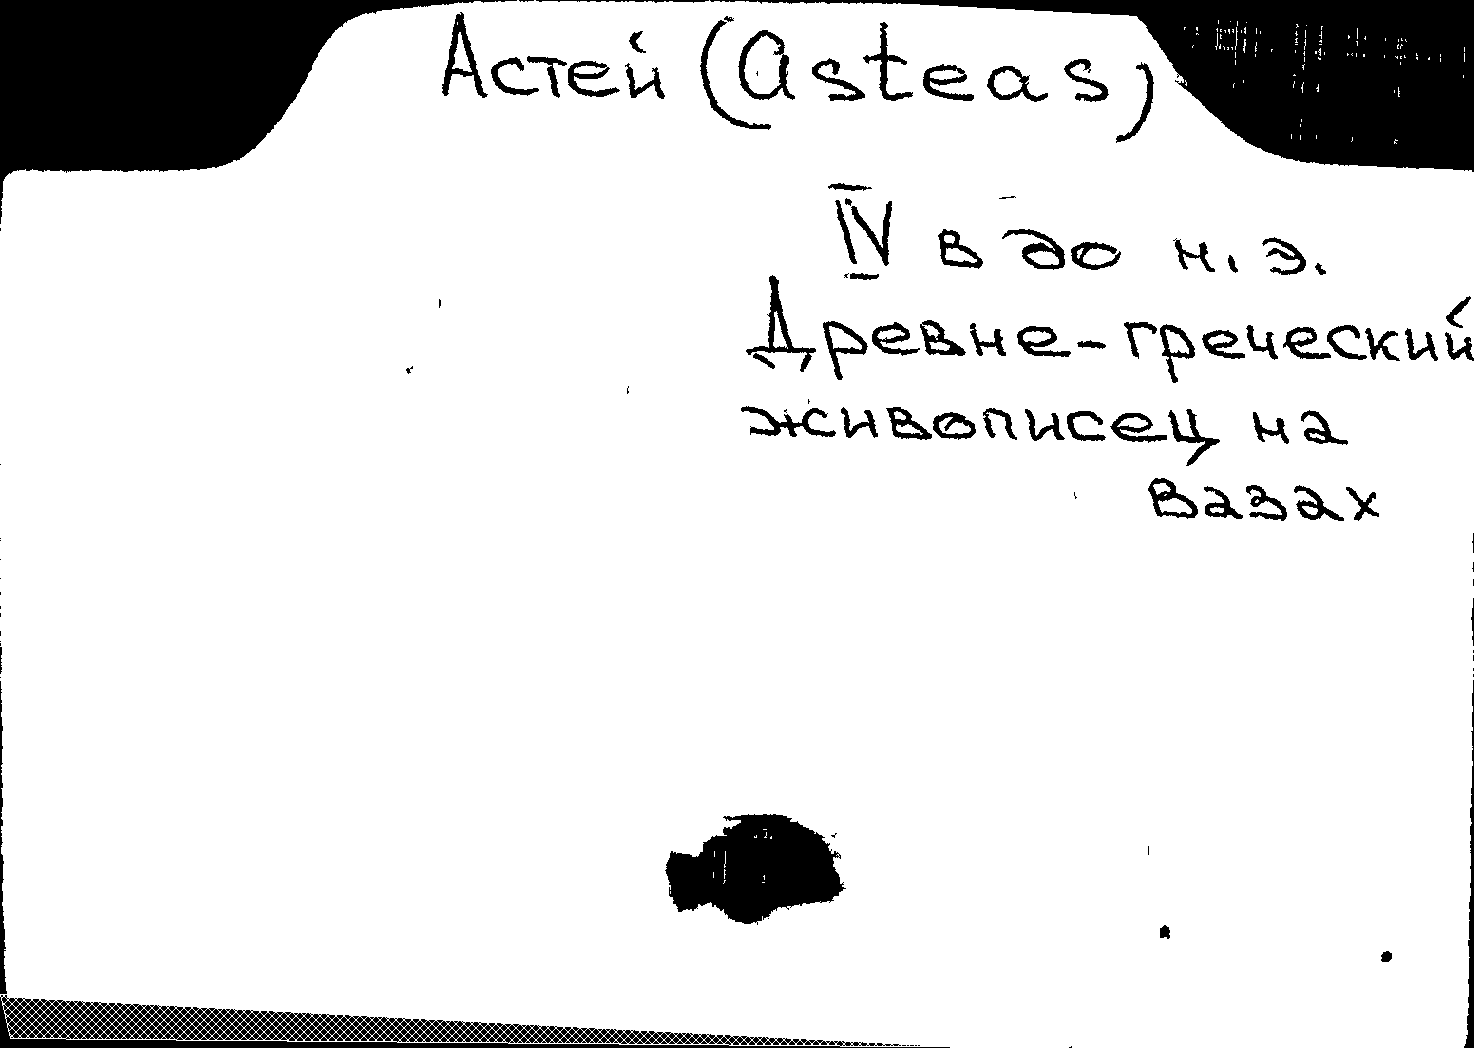 Астей (Asteas)
IV в до н. э.
Древне-греческий
живописец на
вазах